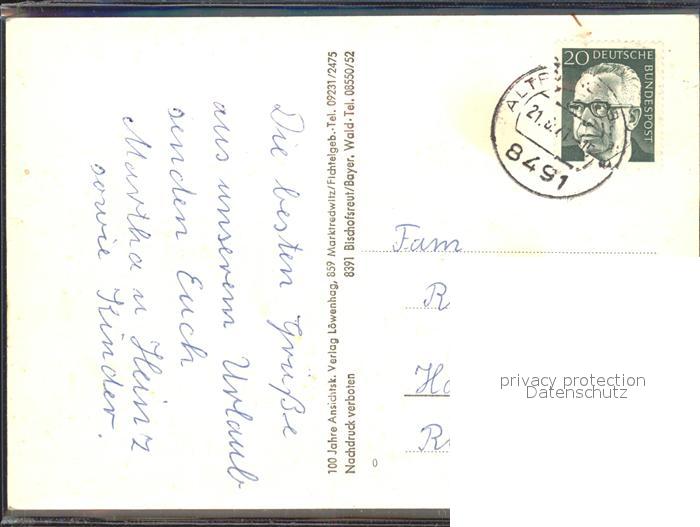 Die besten Grüße
aus unserem Urlaub
senden Euch
Martha u Heinz
sowie Kinder.
100 Jahre Ansichtsk. Verlag Löwenhag, 859 Marktredwitz/Fichtelgeb.-Tel. 09231/2475
8391 Bischofsreut/Bayer. Wald-Tel. 08550/52
Nachdruck verboten
20 DEUTSCHE
BUNDESPOST
8491
Fam
privacy protection
Datenschutz